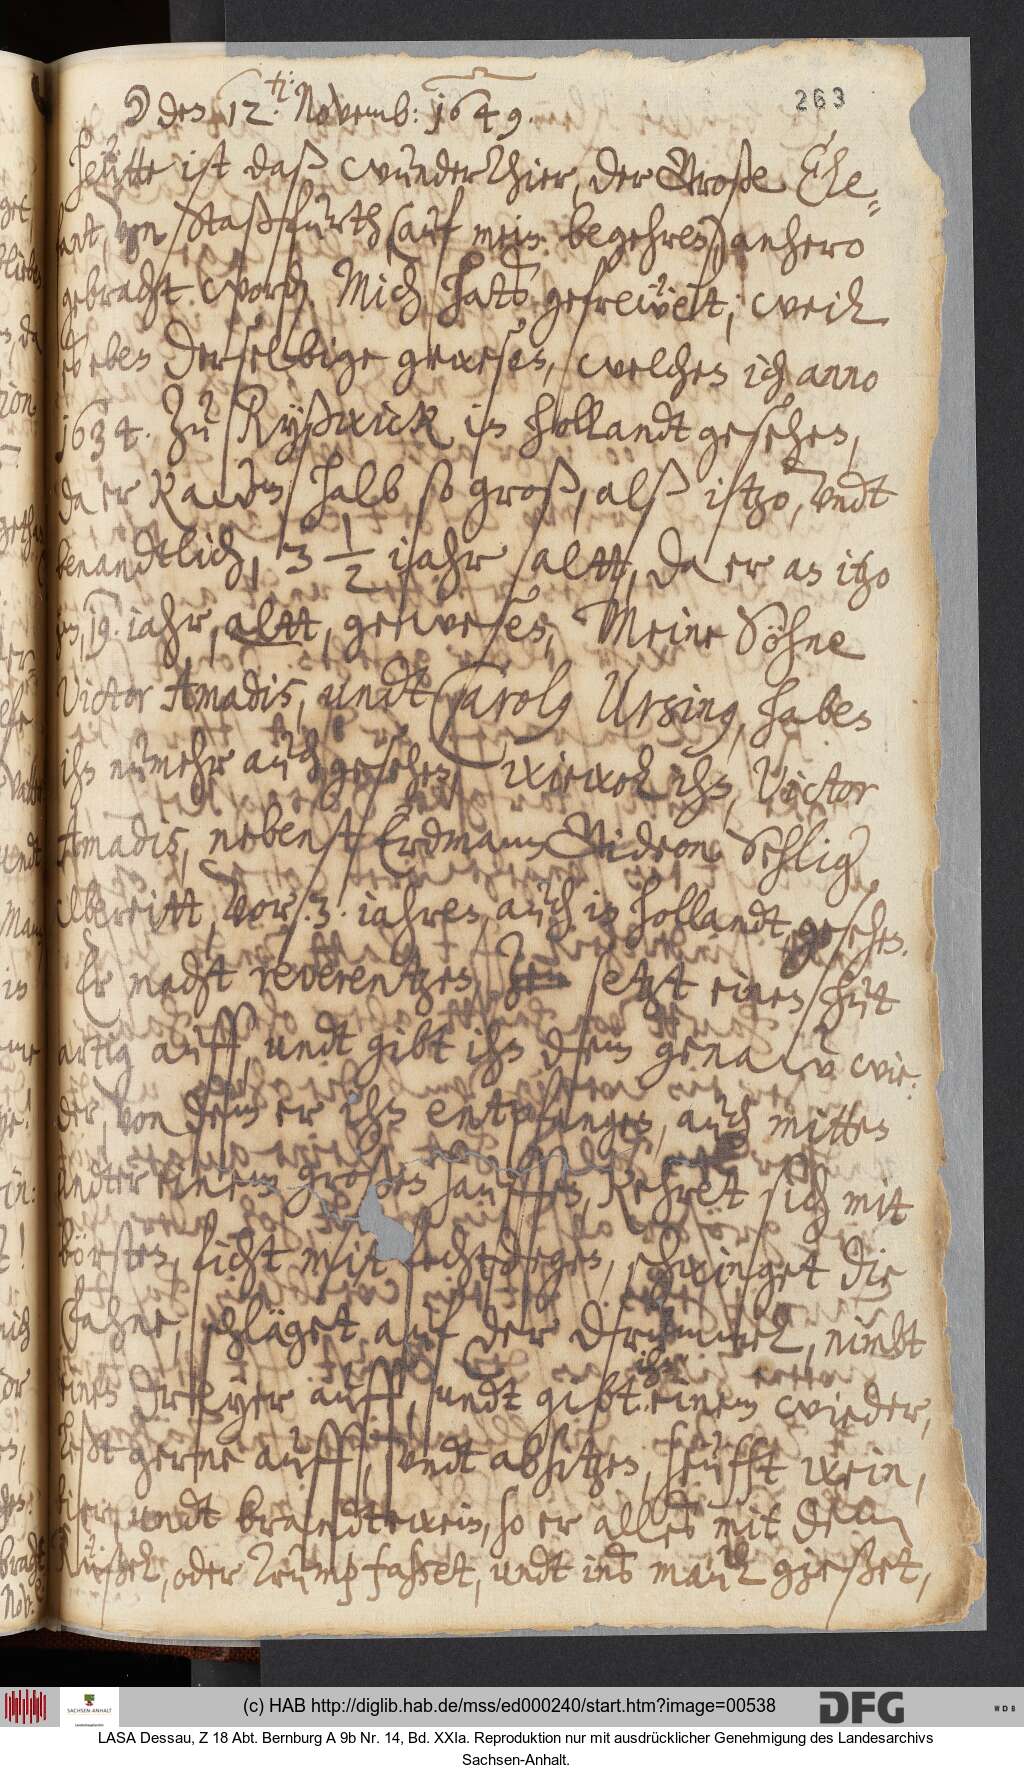 263
☽ den 12.ten: Novemb: 1649.
Heütte ist daß wunderthier, der Große Ele¬
fant, von Staßfurth (auf mein begehren) anhero
gebracht word Mich hats gefrewet, weil
es eben derselbige gewesen, welchen ich anno
1634. zu Ryßwick in Hollandt gesehen,
da er kaum halb so groß, alß itzo, undt
benandtlich, 3 1/2 iahr altt, da er an itzo
19. iahr, altt, gewesen, Meine Söhne
Victor Amadis, undt Carolus Ursinus, haben
ihn nunmehr auch gesehen, wiewol ihn, Victor
Amadis, nebenst Erdmann Gideon Schlig
albereitt, vor .3. iahren, auch in Hollandt gesehen.
Er macht reverentzen, setzt einen hut
artig auff, undt gibt ihn dem genaw wie¬
der, von dem er ihn entpfangen, auch mitten
undter einem großen hauffen, kehret sich mit
börsten, ficht mit fechtdegen, schwinget die
Fahne, schläget auf der drummel, nimbt
einen dreyer auff, undt gibt ihn einem wieder,
leßt gerne auff, undt absitzen, seüfft wein,
bier, undt brandtewein, so er alles mit dem
Rüßel, oder Trump faßet, undt ins maul gießet,
(c) HAB http://diglib.hab.de/mss/ed000240/start.htm?image=00538
SACHSEN-ANHALT
DFG
WDB
LASA Dessau, Z 18 Abt. Bernburg A 9b Nr. 14, Bd. XXIa. Reproduktion nur mit ausdrücklicher Genehmigung des Landesarchivs
Sachsen-Anhalt.